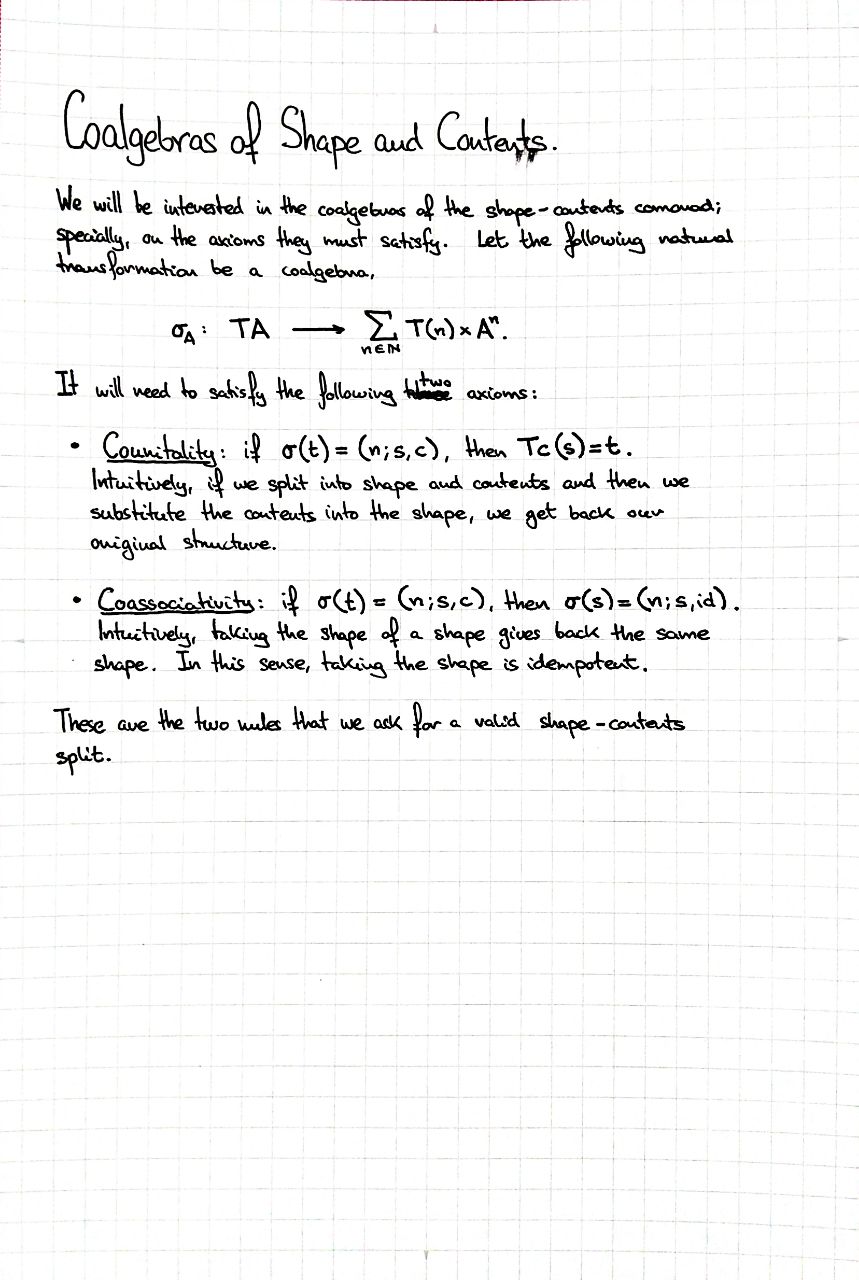 Coalgebras of Shape and Contents.
We will be interested in the coalgebras of the shape-contents comonad;
specially, on the axioms they must satisfy. Let the following natural
transformation be a coalgebra,
σ_A : TA ⟶ ∑_{n∈ℕ} T(n) × Aⁿ.
It will need to satisfy the following two axioms:
• Counitality: if σ(t) = (n; s, c), then Tc(s) = t.
Intuitively, if we split into shape and contents and then we
substitute the contents into the shape, we get back our
original structure.
• Coassociativity: if σ(t) = (n; s, c), then σ(s) = (n; s, id).
Intuitively, taking the shape of a shape gives back the same
shape. In this sense, taking the shape is idempotent.
These are the two rules that we ask for a valid shape-contents
split.